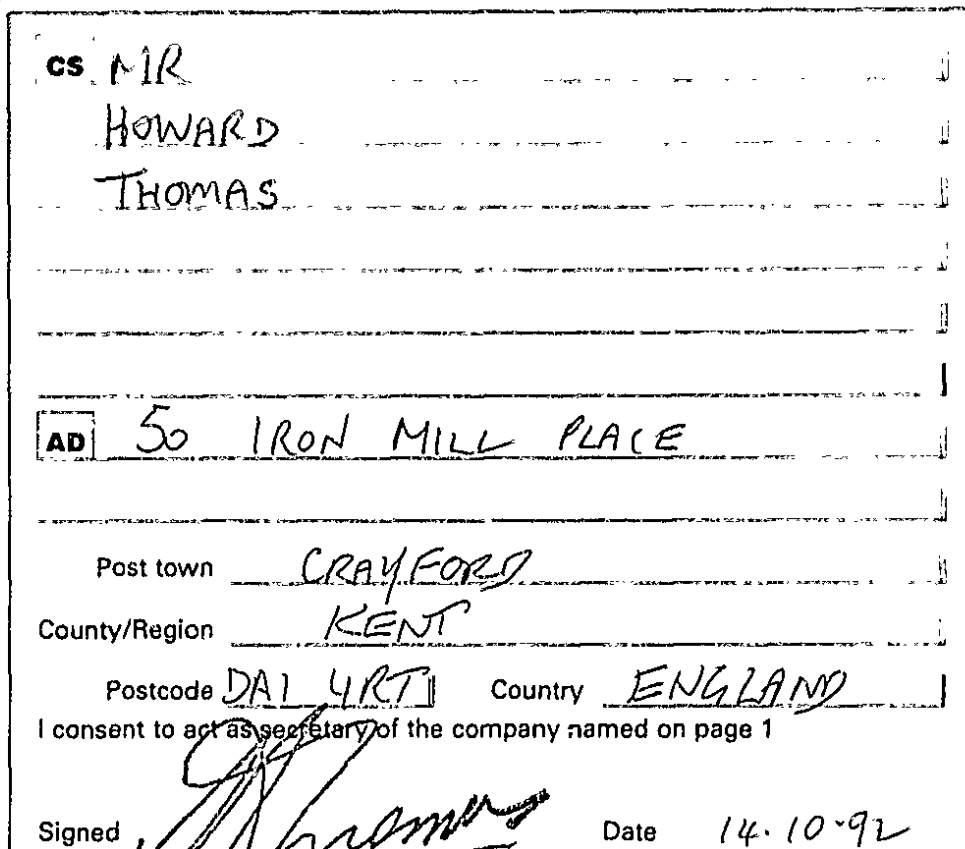 CS MR
HOWARD
THOMAS
AD 50 IRON MILL PLACE
Post town CRAYFORD
County/Region KENT
Postcode DA1 4RT Country ENGLAND
I consent to act as secretary of the company named on page 1
Signed Thomas Date 14.10.92